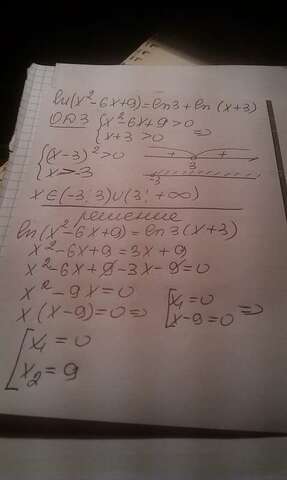 ln(x²-6x+9)=ln3+ln(x+3)
ОДЗ {x²-6x+9>0
{x+3>0 =>
{(x-3)²>0 + + 3
{x>-3 -3
x∈(-3;3)∪(3;+∞)
решение
ln(x²-6x+9)=ln3(x+3)
x²-6x+9=3x+9
x²-6x+9-3x-9=0
x²-9x=0
x(x-9)=0=> [x₁=0
[x-9=0 =>
[x₁=0
[x₂=9